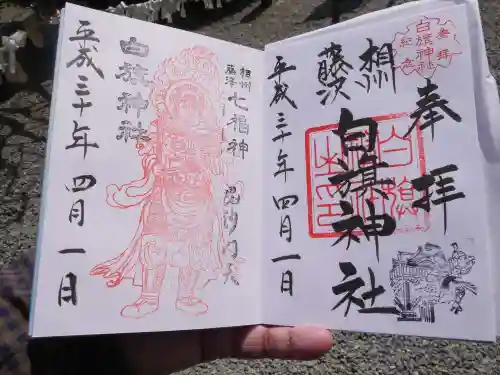 奉拝
相州
藤沢
白旗神社
平成三十年四月一日
白旗神社
参拝
記念
相州
藤沢
七福神
毘沙門天
白旗神社
平成三十年四月一日